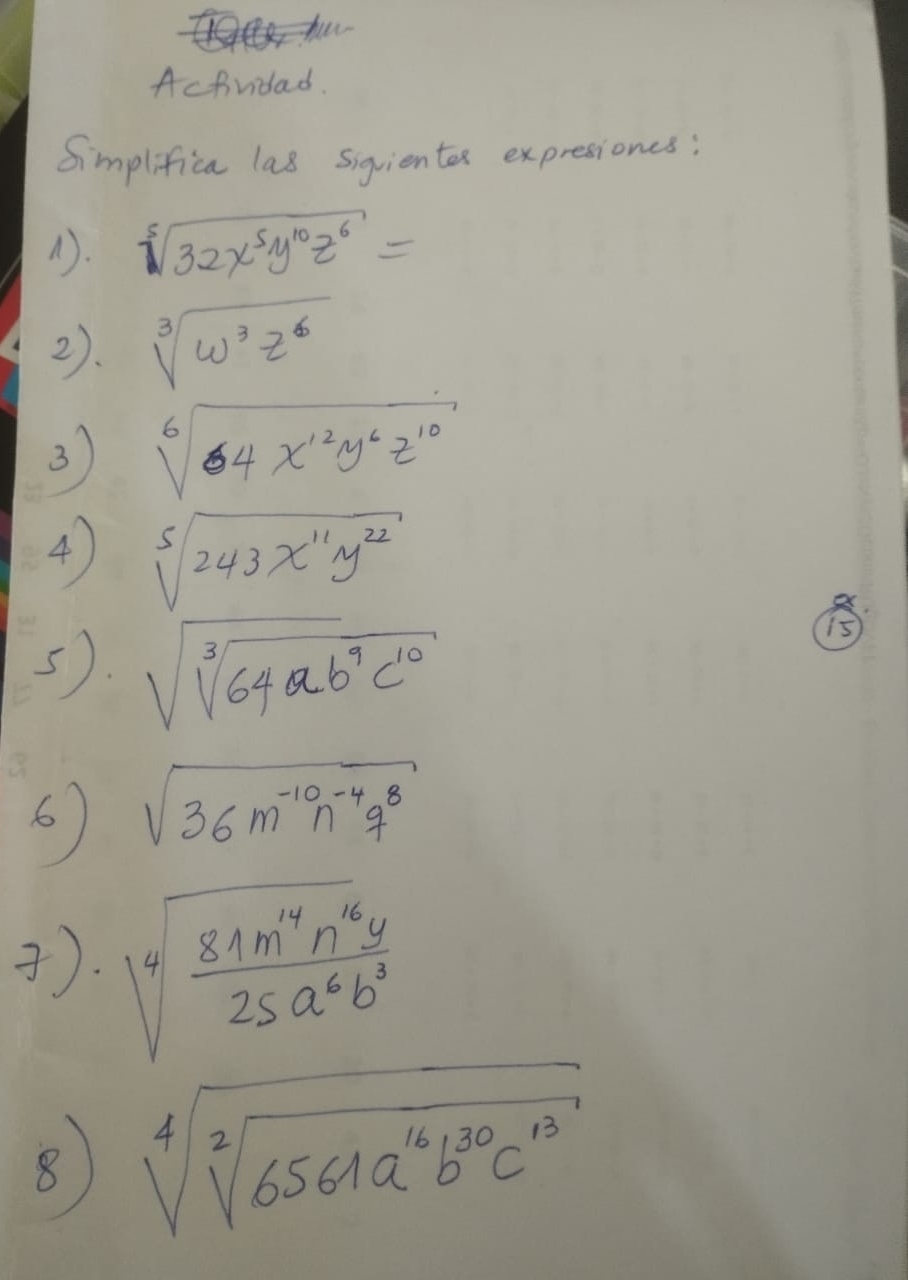 Actividad.
Simplifica las siguientes expresiones:
1). ⁵√32x⁵y¹⁰z⁶ =
2). ³√w³z⁶
3) ⁶√64x¹²y⁶z¹⁰
4) ⁵√243x¹¹y²²
5). √³√64ab⁹c¹⁰
15
6) √36m⁻¹⁰n⁻⁴q⁸
7). ⁴√81m¹⁴n¹⁶y
25a⁶b³
8) ⁴√²√6561a¹⁶b³⁰c¹³